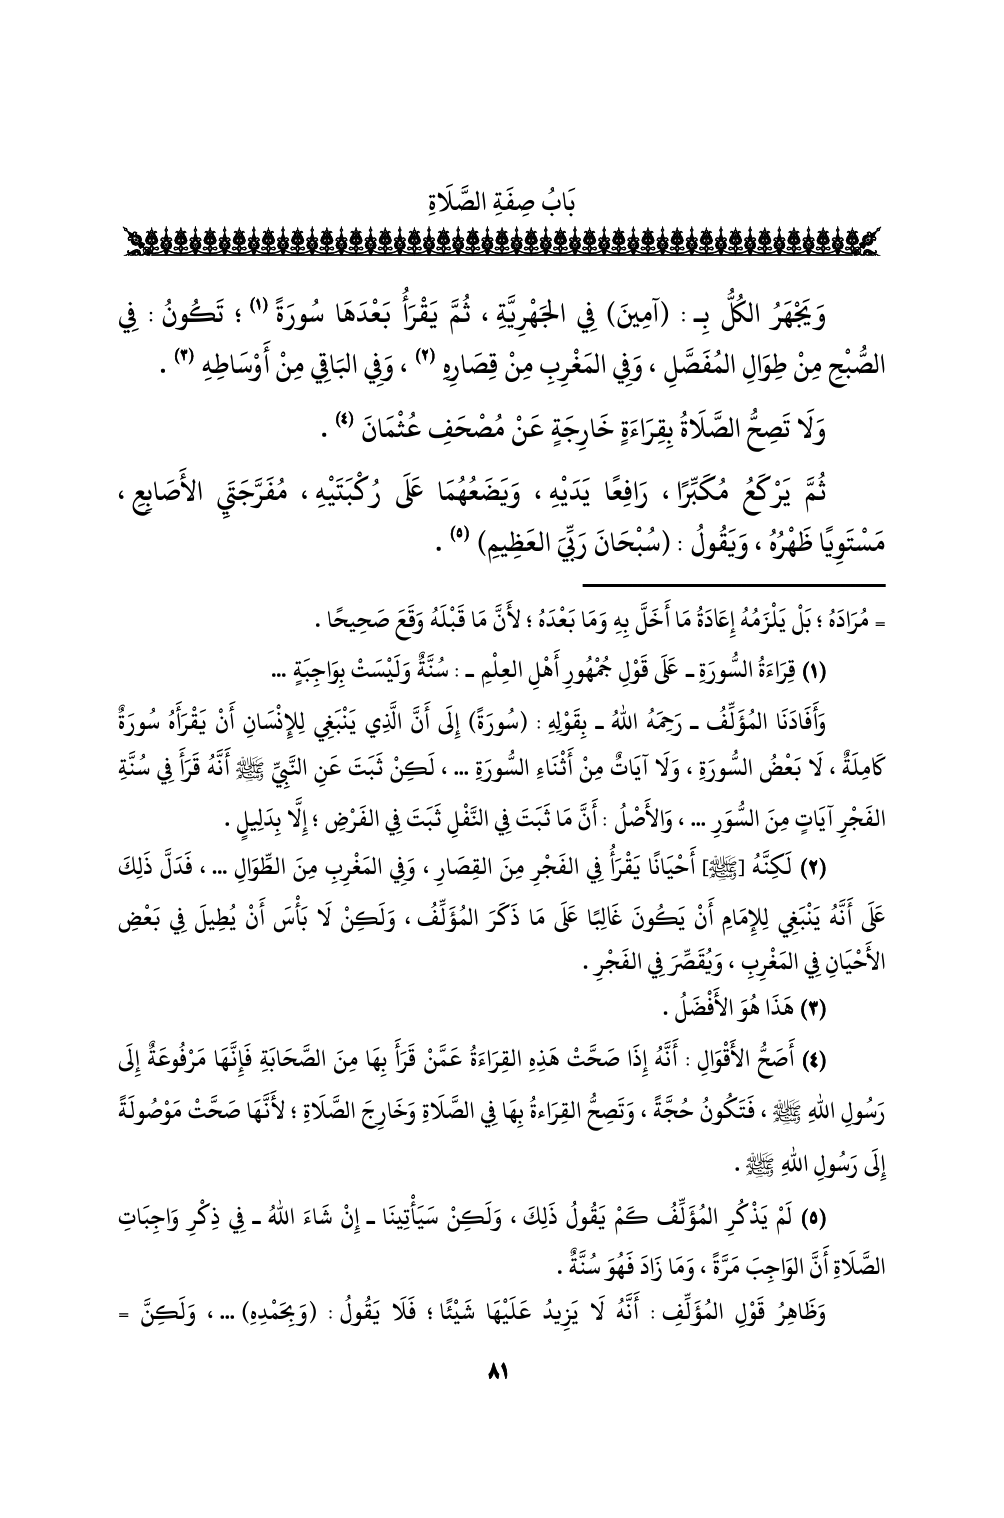 بَابُ صِفَةِ الصَّلَاةِ
وَيَجْهَرُ الكُلُّ بِـ : (آمِينَ) فِي الجَهْرِيَّةِ ، ثُمَّ يَقْرَأُ بَعْدَهَا سُورَةً (١) ؛ تَكُونُ : فِي
الصُّبْحِ مِنْ طِوَالِ المُفَصَّلِ ، وَفِي المَغْرِبِ مِنْ قِصَارِهِ (٢) ، وَفِي البَاقِي مِنْ أَوْسَاطِهِ (٣) .
وَلَا تَصِحُّ الصَّلَاةُ بِقِرَاءَةٍ خَارِجَةٍ عَنْ مُصْحَفِ عُثْمَانَ (٤) .
ثُمَّ يَرْكَعُ مُكَبِّرًا ، رَافِعًا يَدَيْهِ ، وَيَضَعُهُمَا عَلَى رُكْبَتَيْهِ ، مُفَرَّجَتَيِ الأَصَابِعِ ،
مَسْتَوِيًا ظَهْرُهُ ، وَيَقُولُ : (سُبْحَانَ رَبِّيَ العَظِيمِ) (٥) .
= مُرَادَهُ ؛ بَلْ يَلْزَمُهُ إِعَادَةُ مَا أَخَلَّ بِهِ وَمَا بَعْدَهُ ؛ لأَنَّ مَا قَبْلَهُ وَقَعَ صَحِيحًا .
(١) قِرَاءَةُ السُّورَةِ ـ عَلَى قَوْلِ جُمْهُورِ أَهْلِ العِلْمِ ـ : سُنَّةٌ وَلَيْسَتْ بِوَاجِبَةٍ ...
وَأَفَادَنَا المُؤَلِّفُ ـ رَحِمَهُ اللهُ ـ بِقَوْلِهِ : (سُورَةً) إِلَى أَنَّ الَّذِي يَنْبَغِي لِلإِنْسَانِ أَنْ يَقْرَأَهُ سُورَةٌ
كَامِلَةٌ ، لَا بَعْضُ السُّورَةِ ، وَلَا آيَاتٌ مِنْ أَثْنَاءِ السُّورَةِ ... ، لَكِنْ ثَبَتَ عَنِ النَّبِيِّ ﷺ أَنَّهُ قَرَأَ فِي سُنَّةِ
الفَجْرِ آيَاتٍ مِنَ السُّوَرِ ... ، وَالأَصْلُ : أَنَّ مَا ثَبَتَ فِي النَّفْلِ ثَبَتَ فِي الفَرْضِ ؛ إِلَّا بِدَلِيلٍ .
(٢) لَكِنَّهُ [ﷺ] أَحْيَانًا يَقْرَأُ فِي الفَجْرِ مِنَ القِصَارِ ، وَفِي المَغْرِبِ مِنَ الطِّوَالِ ... ، فَدَلَّ ذَلِكَ
عَلَى أَنَّهُ يَنْبَغِي لِلإِمَامِ أَنْ يَكُونَ غَالِبًا عَلَى مَا ذَكَرَ المُؤَلِّفُ ، وَلَكِنْ لَا بَأْسَ أَنْ يُطِيلَ فِي بَعْضِ
الأَحْيَانِ فِي المَغْرِبِ ، وَيُقَصِّرَ فِي الفَجْرِ .
(٣) هَذَا هُوَ الأَفْضَلُ .
(٤) أَصَحُّ الأَقْوَالِ : أَنَّهُ إِذَا صَحَّتْ هَذِهِ القِرَاءَةُ عَمَّنْ قَرَأَ بِهَا مِنَ الصَّحَابَةِ فَإِنَّهَا مَرْفُوعَةٌ إِلَى
رَسُولِ اللهِ ﷺ ، فَتَكُونُ حُجَّةً ، وَتَصِحُّ القِرَاءةُ بِهَا فِي الصَّلَاةِ وَخَارِجَ الصَّلَاةِ ؛ لأَنَّهَا صَحَّتْ مَوْصُولَةً
إِلَى رَسُولِ اللهِ ﷺ .
(٥) لَمْ يَذْكُرِ المُؤَلِّفُ كَمْ يَقُولُ ذَلِكَ ، وَلَكِنْ سَيَأْتِينَا ـ إِنْ شَاءَ اللهُ ـ فِي ذِكْرِ وَاجِبَاتِ
الصَّلَاةِ أَنَّ الوَاجِبَ مَرَّةً ، وَمَا زَادَ فَهُوَ سُنَّةٌ .
وَظَاهِرُ قَوْلِ المُؤَلِّفِ : أَنَّهُ لَا يَزِيدُ عَلَيْهَا شَيْئًا ؛ فَلَا يَقُولُ : (وَبِحَمْدِهِ) ... ، وَلَكِنَّ =
٨١